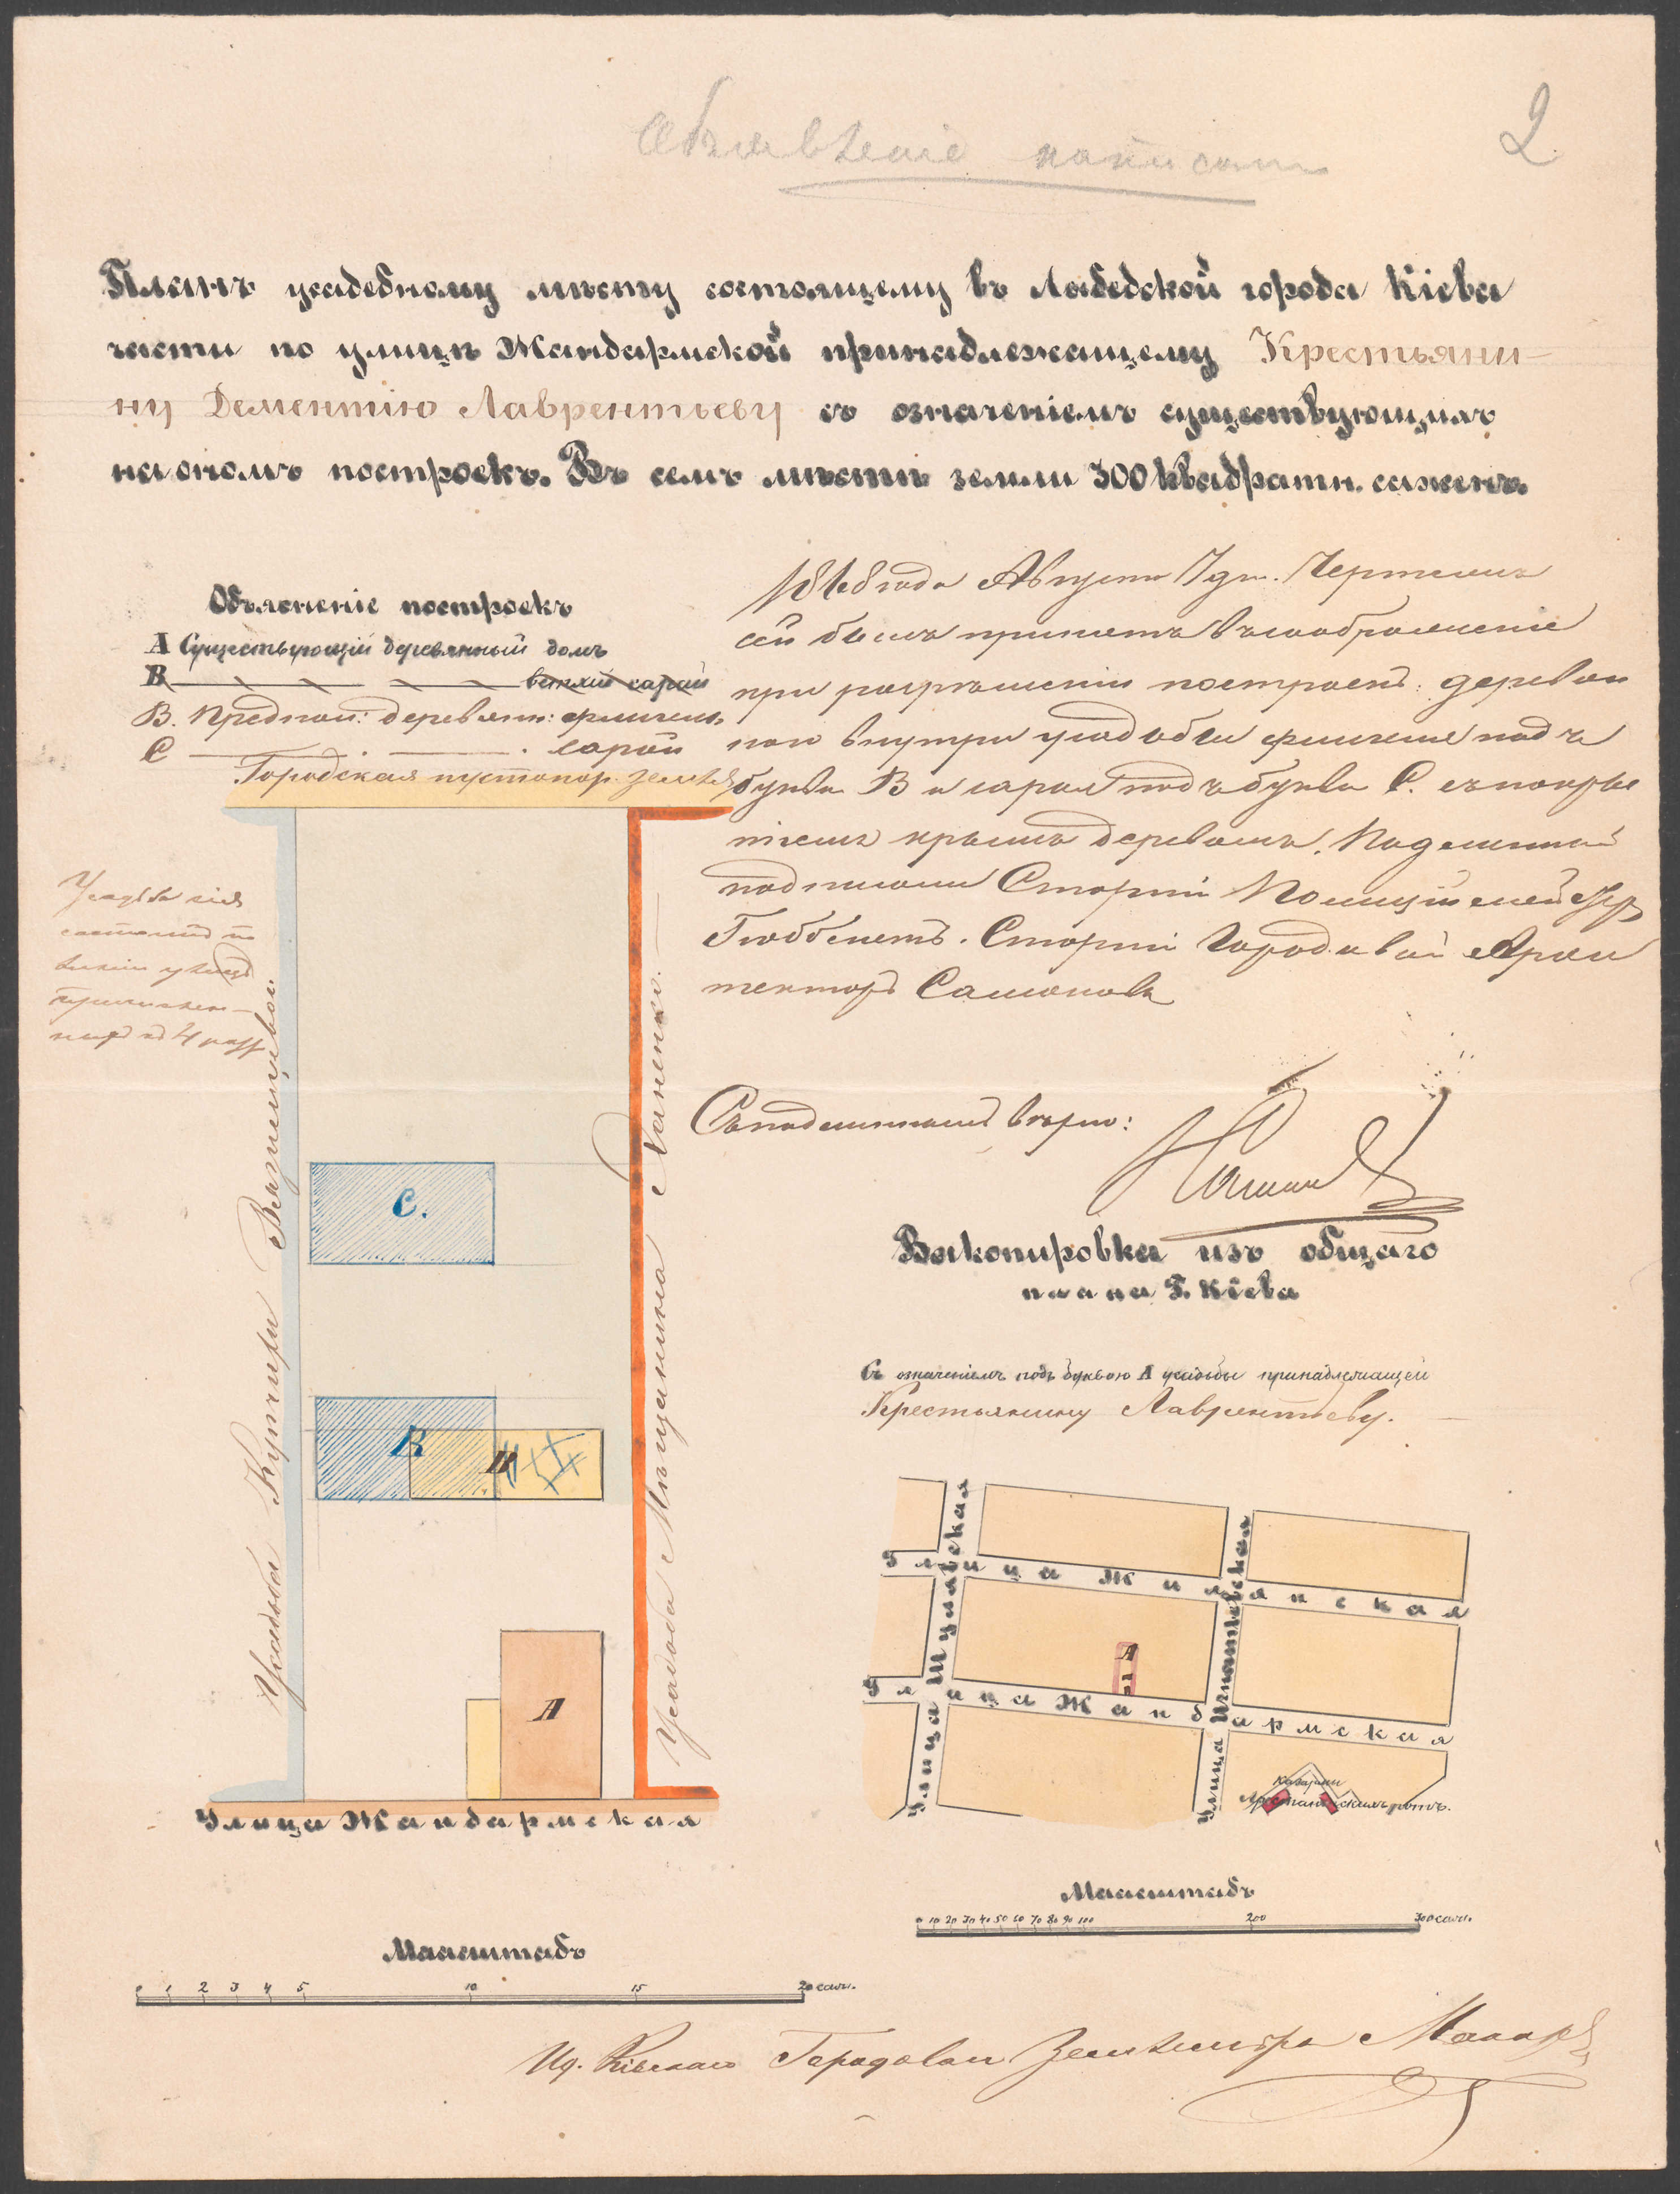 Объявленіе написать
2
Планъ усадебному мѣсту состоящему въ Лыбедской города Кіева
части по улицѣ Жандармской принадлежащему Крестьяни-
ну Дементію Лаврентьеву съ означеніемъ существующихъ
на ономъ построекъ. Въ семъ мѣстѣ земли 300 квадратн. саженъ.
Объясненіе построекъ
А Существующій деревянный домъ
В ветхій сарай
В. Предпол: деревян: флигель
С сарай
Городская пустопор. земля
1868 года Августа 7 дн. Чертежъ
сей былъ принятъ въ соображеніе
при разрѣшеніи построекъ: деревян
наго внутри усадьбы флигеля подъ
буквою В и сарая подъ буквою С. съ покры
тіемъ крышъ деревомъ. Подлинный
подписали Старшій Полицiймейстеръ
Гюббенетъ. Старшій Городовой Архи
текторъ
Усадьба сія
состоитъ по
улицѣ
причислен-
ной къ 4 разр
Усадьба Купчихи
Усадьба Мѣщанина Ханенко
С.
В
В
А
Улица Жандармская
Съ подлиннымъ вѣрно:
Выкопировка изъ общаго
плана Г. Кіева
Съ означеніемъ подъ буквою А усадьбы принадлежащей
Крестьянину Лаврентьеву.
Улица Жилянская
Улица Жандармская
Улица Шулявская
Улица Игнатьевская
А
Казармы
Арестантскихъ ротъ.
Масштабъ
0 10 20 30 40 50 60 70 80 90 100 200 300 саж.
Масштабъ
0 1 2 3 4 5 10 15 20 саж.
Ид. Кіевскаго Городоваго Землемѣра